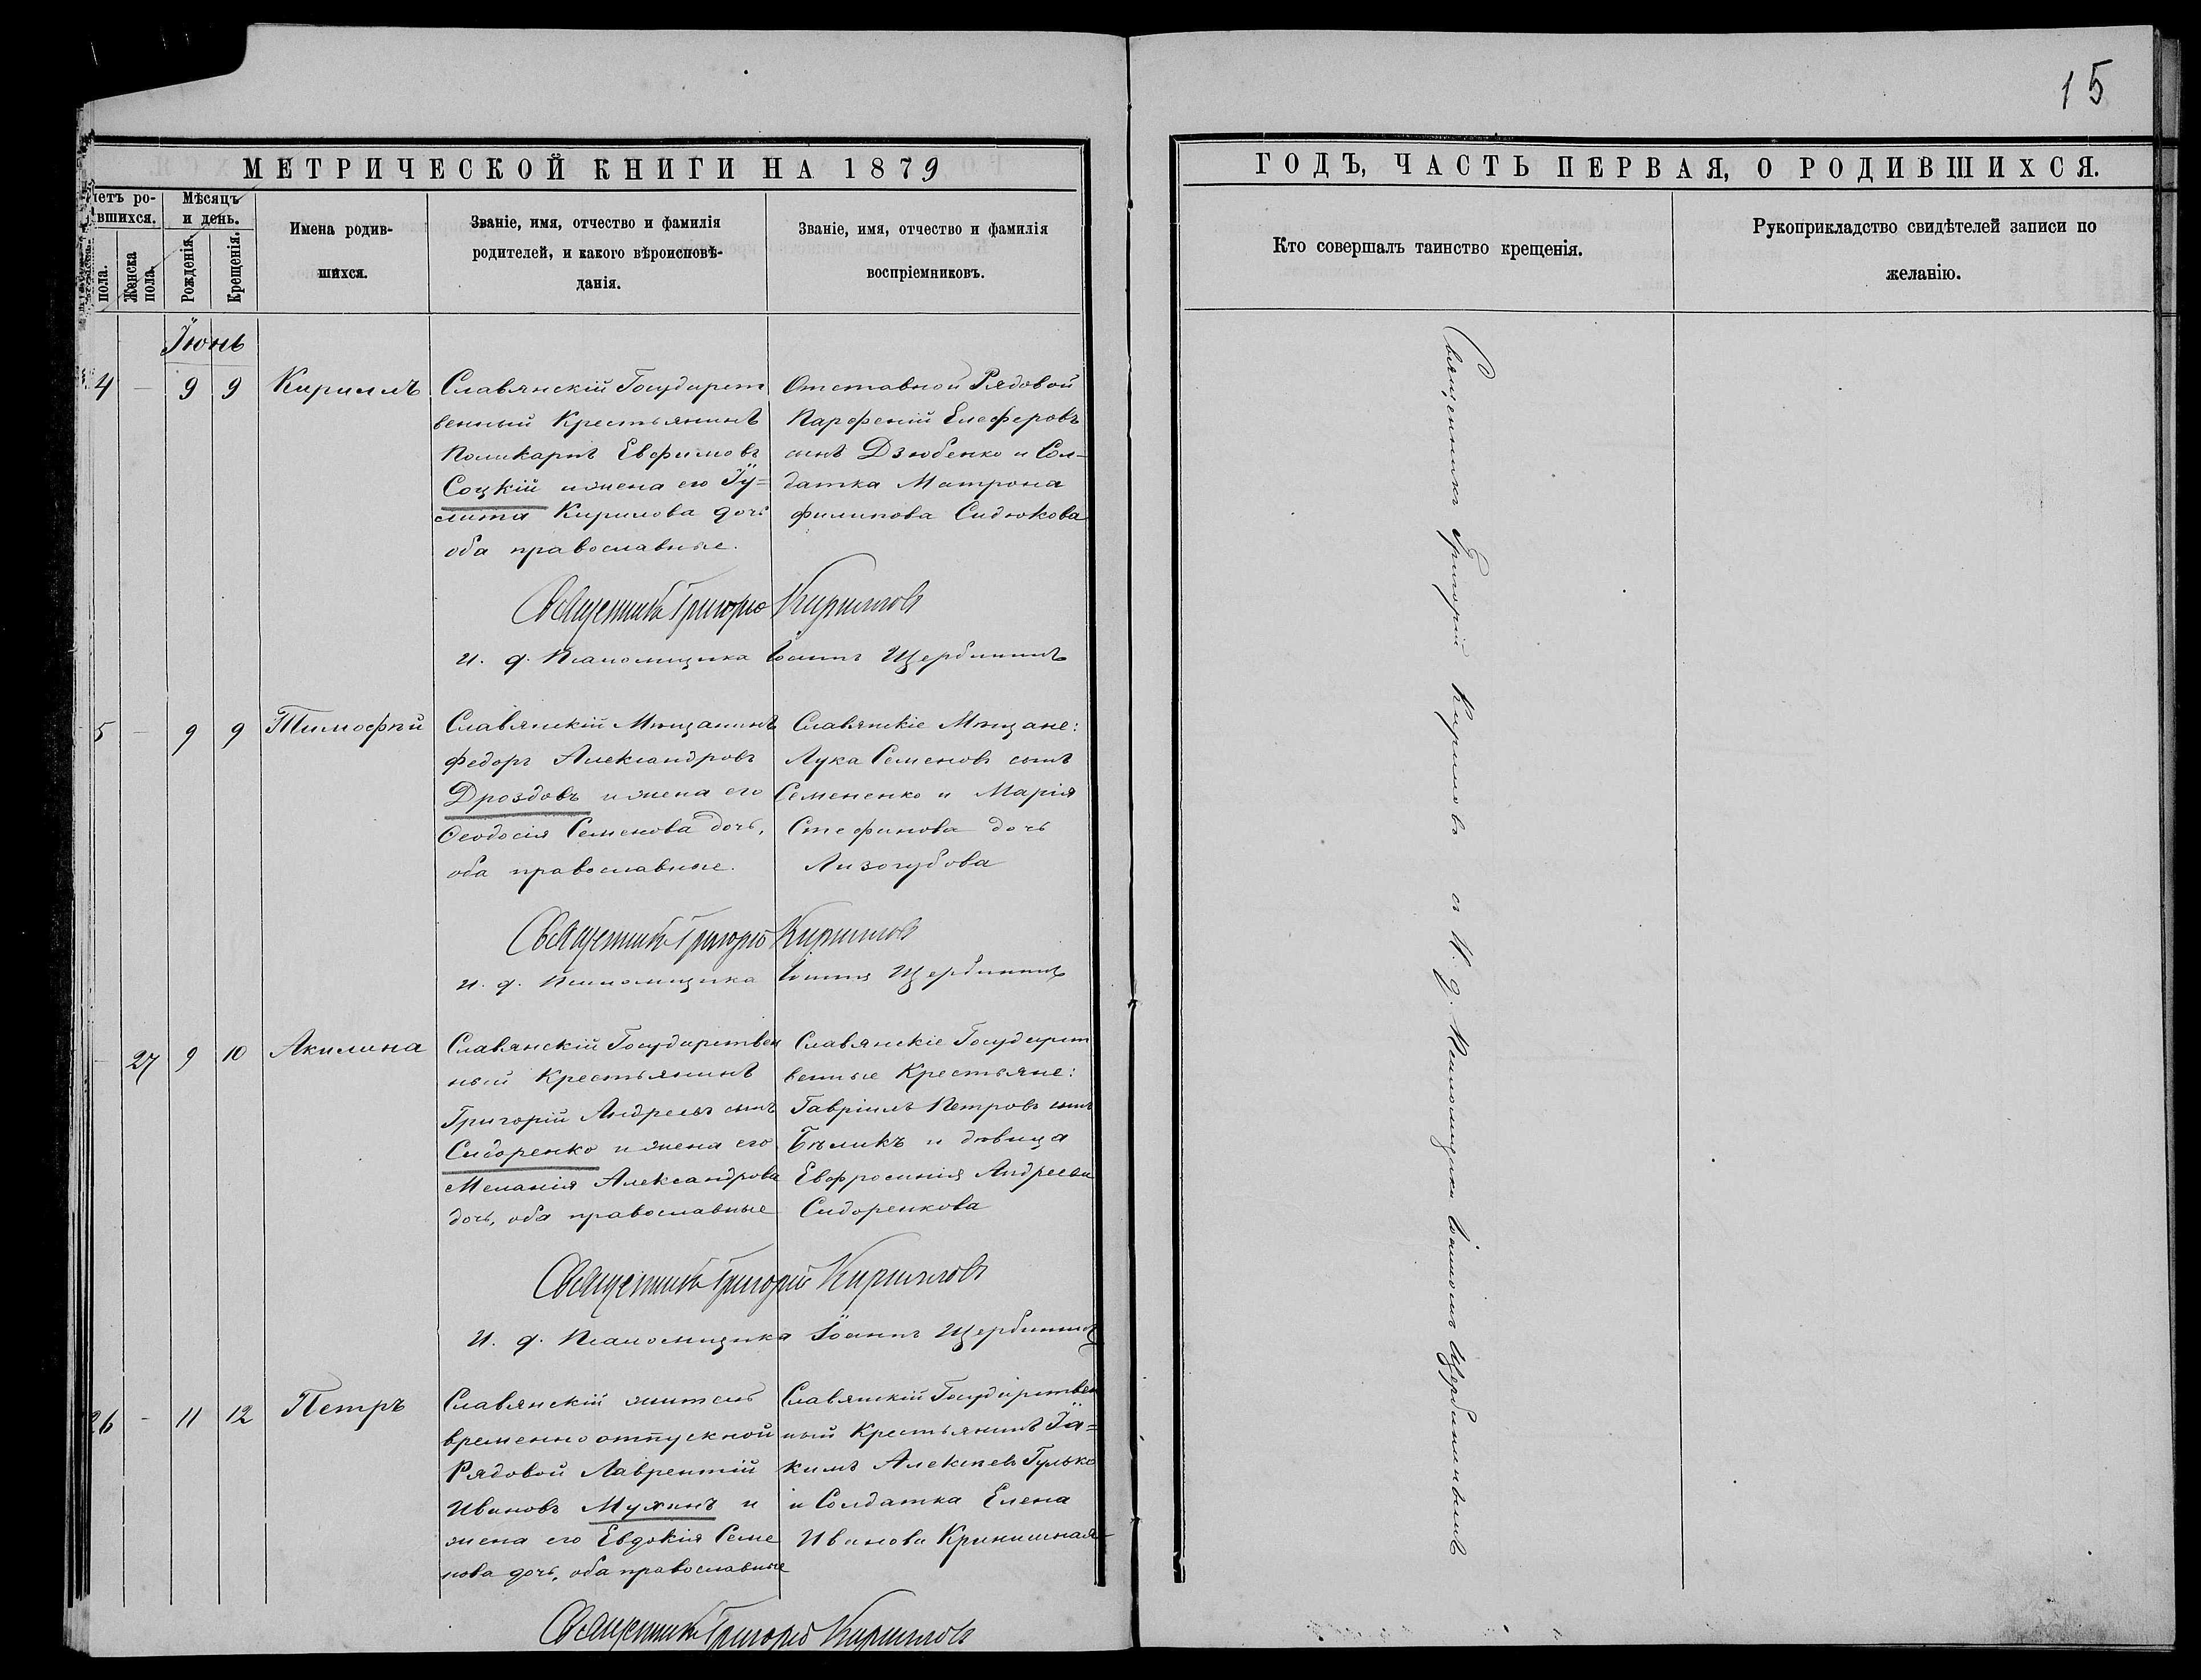 15
МЕТРИЧЕСКОЙ КНИГИ НА 1879
ГОДЪ, ЧАСТЬ ПЕРВАЯ, О РОДИВШИХСЯ.
четъ ро-
вшихся.
пола.
Женска
пола.
Мѣсяцъ
и день.
Рожденія.
Крещенія.
Имена родив-
шихся.
Званіе, имя, отчество и фамилія
родителей, и какого вѣроисповѣ-
данія.
Званіе, имя, отчество и фамилія
воспріемниковъ.
Кто совершалъ таинство крещенія.
Рукоприкладство свидѣтелей записи по
желанію.
Іюнь
4 — 9 9 Кириллъ
Славянскій Государст
венный Крестьянинъ
Поликарпъ Евфимовъ
Соцкій и жена его Іу=
лита Кирилова дочь
оба православные.
Отставной Рядовой
Парфеній Елеферовъ
сынъ Дзюбенко и Сол-
датка Матрона
Филипова Сидюкова
Священникъ Григорій Кирилловъ
И. д. Псаломщика Іоаннъ Щербининъ
5 — 9 9 Тимофѣй
Славянскій Мѣщанинъ
Федоръ Александровъ
Дроздовъ и жена его
Феодосія Семенова дочь,
оба православные.
Славянскіе Мѣщане:
Лука Семеновъ сынъ
Семененко и Марія
Стефанова дочь
Лизогубова
Священникъ Григорій Кирилловъ
И. д. Псаломщика Іоаннъ Щербининъ
27 9 10 Акилина
Славянскій Государствен
ный Крестьянинъ
Григорій Андреевъ сынъ
Сидоренко и жена его
Меланія Александрова
дочь, оба православные
Славянскіе Государст
венные Крестьяне:
Гавріилъ Петровъ сынъ
Бѣликъ и дѣвица
Евфросинія Андреева
Сидоренкова
Священникъ Григорій Кирилловъ
И. д. Псаломщика Іоаннъ Щербининъ
26 — 11 12 Петръ
Славянскій житель
временно отпускной
Рядовой Лаврентій
Ивановъ Мухинъ и
жена его Евдокія Семе
нова дочь, оба православные
Славянскій Государствен
ный Крестьянинъ Іа=
кимъ Алексѣевъ Гулько
и Солдатка Елена
Иванова Кринишная
Священникъ Григорій Кирилловъ
Священникъ Григорій Кириловъ съ И. д. Псаломщика Іоанномъ Щербининымъ